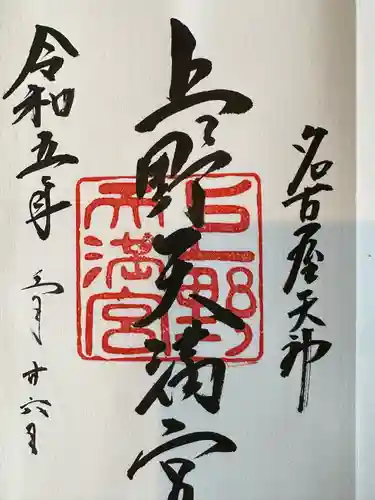 名古屋天神
上野天満宮
上野
天満宮
令和五年
月廿六日